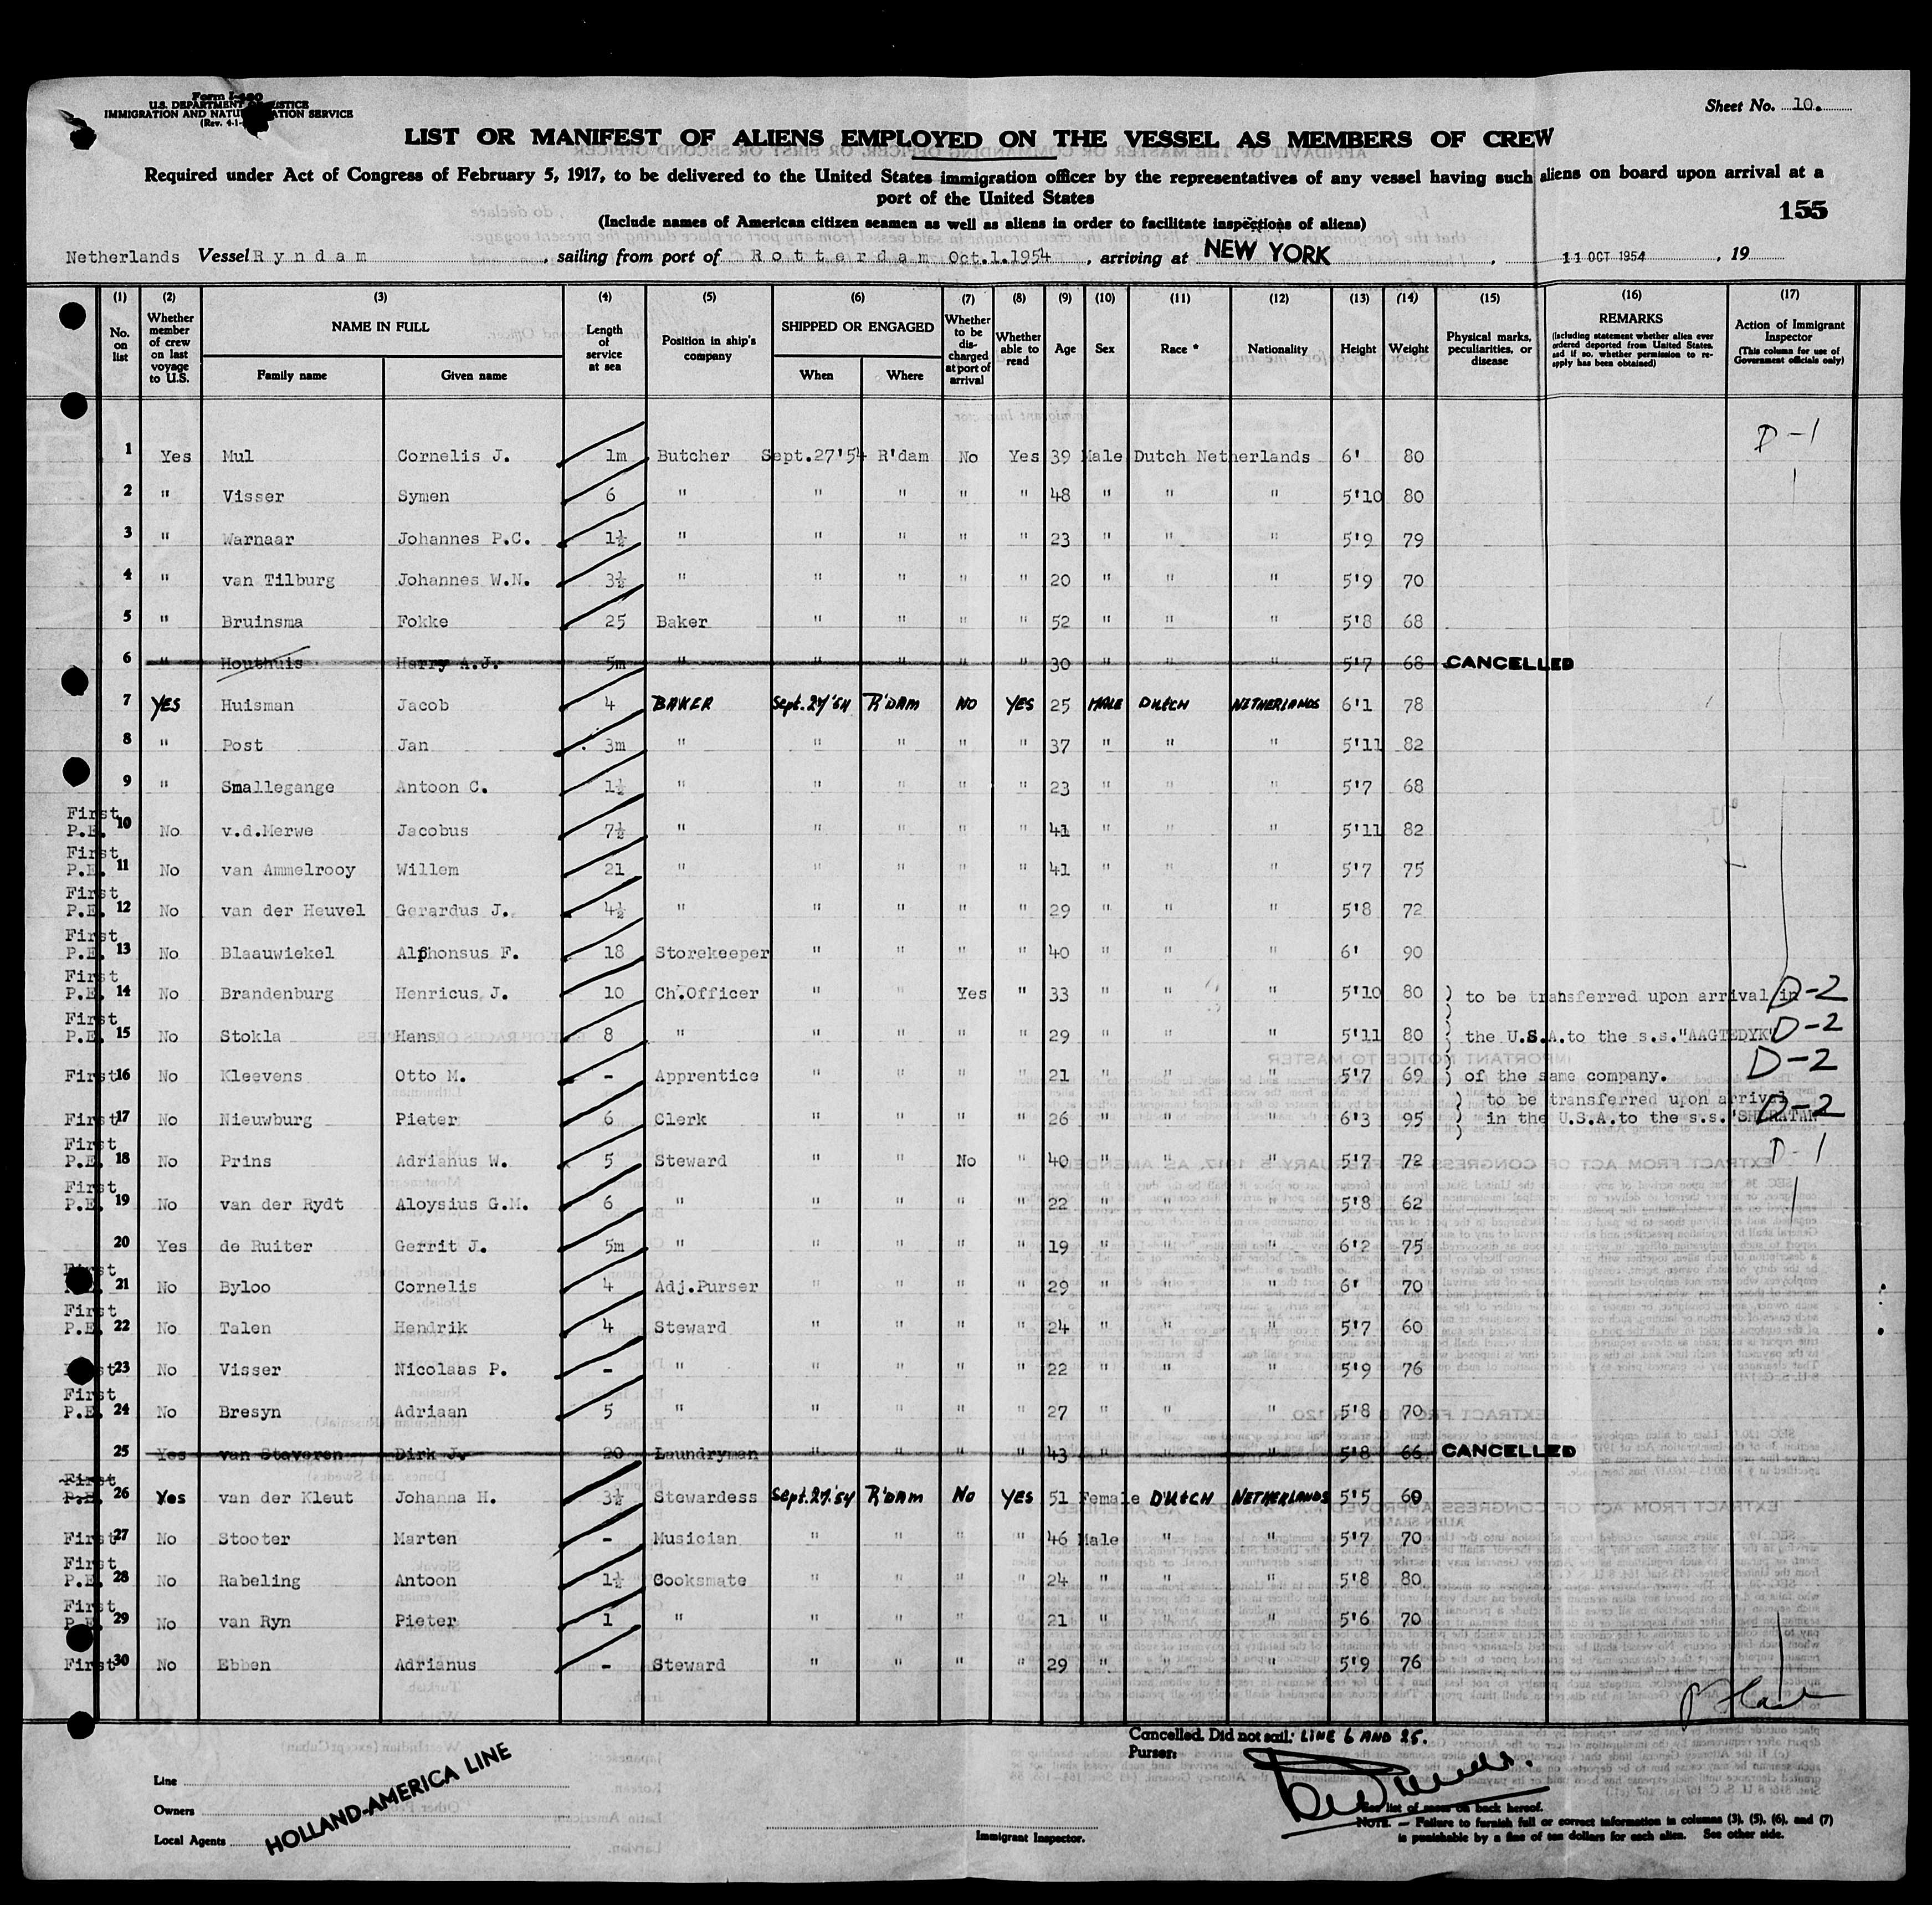 Form I-480
U.S. DEPARTMENT OF JUSTICE
IMMIGRATION AND NATURALIZATION SERVICE
(Rev. 4-1-
Sheet No. 10.
LIST OR MANIFEST OF ALIENS EMPLOYED ON THE VESSEL AS MEMBERS OF CREW
Required under Act of Congress of February 5, 1917, to be delivered to the United States immigration officer by the representatives of any vessel having such aliens on board upon arrival at a
port of the United States
155
(Include names of American citizen seamen as well as aliens in order to facilitate inspections of aliens)
Netherlands Vessel Ryndam , sailing from port of Rotterdam Oct.1.1954 , arriving at NEW YORK , 11 OCT 1954 , 19
(1) No. on list (2) Whether member of crew on last voyage to U.S. (3) NAME IN FULL Family name Given name (4) Length of service at sea (5) Position in ship's company (6) SHIPPED OR ENGAGED When Where (7) Whether to be discharged at port of arrival (8) Whether able to read (9) Age (10) Sex (11) Race * (12) Nationality (13) Height (14) Weight (15) Physical marks, peculiarities, or disease (16) REMARKS (Including statement whether alien ever ordered deported from United States, and if so, whether permission to re-apply has been obtained) (17) Action of Immigrant Inspector (This column for use of Government officials only)
1 Yes Mul Cornelis J. 1m Butcher Sept.27'54 R'dam No Yes 39 Male Dutch Netherlands 6' 80 D-1
2 " Visser Symen 6 " " " " " 48 " " " 5'10 80
3 " Warnaar Johannes P.C. 1½ " " " " " 23 " " " 5'9 79
4 " van Tilburg Johannes W.N. 3½ " " " " " 20 " " " 5'9 70
5 " Bruinsma Fokke 25 Baker " " " " 52 " " " 5'8 68
6 " Houthuis Harry A.J. 5m " " " " " 30 " " " 5'7 68 CANCELLED
7 YES Huisman Jacob 4 BAKER Sept.27'54 R'DAM NO YES 25 MALE DUTCH NETHERLANDS 6'1 78
8 " Post Jan 3m " " " " " 37 " " " 5'11 82
9 " Smallegange Antoon C. 1½ " " " " " 23 " " " 5'7 68
First P.E. 10 No v.d.Merwe Jacobus 7½ " " " " " 41 " " " 5'11 82
First P.E. 11 No van Ammelrooy Willem 21 " " " " " 41 " " " 5'7 75
First P.E. 12 No van der Heuvel Gerardus J. 4½ " " " " " 29 " " " 5'8 72
First P.E. 13 No Blaauwiekel Alphonsus F. 18 Storekeeper " " " " 40 " " " 6' 90
First P.E. 14 No Brandenburg Henricus J. 10 Ch.Officer " " Yes " 33 " " " 5'10 80 ) to be transferred upon arrival in D-2
First P.E. 15 No Stokla Hans 8 " " " " " 29 " " " 5'11 80 ) the U.S.A.to the s.s."AAGTEDYK" D-2
First 16 No Kleevens Otto M. - Apprentice " " " " 21 " " " 5'7 69 ) of the same company. D-2
First 17 No Nieuwburg Pieter 6 Clerk " " " " 26 " " " 6'3 95 ) to be transferred upon arrival
in the U.S.A.to the s.s. D-2
First P.E. 18 No Prins Adrianus W. 5 Steward " " No " 40 " " " 5'7 72 D-1
First P.E. 19 No van der Rydt Aloysius G.M. 6 " " " " " 22 " " " 5'8 62
20 Yes de Ruiter Gerrit J. 5m " " " " " 19 " " " 6'2 75
First 21 No Byloo Cornelis 4 Adj.Purser " " " " 29 " " " 6' 70
First P.E. 22 No Talen Hendrik 4 Steward " " " " 24 " " " 5'7 60
First 23 No Visser Nicolaas P. - " " " " " 22 " " " 5'9 76
First P.E. 24 No Bresyn Adriaan 5 " " " " " 27 " " " 5'8 70
25 Yes van Staveren Dirk J. 20 Laundryman " " " " 43 " " " 5'8 66 CANCELLED
First P.E. 26 Yes van der Kleut Johanna H. 3½ Stewardess Sept.27.'54 R'DAM No YES 51 Female DUTCH NETHERLANDS 5'5 60
First 27 No Stooter Marten - Musician " " " " 46 Male " " 5'7 70
First P.E. 28 No Rabeling Antoon 1½ Cooksmate " " " " 24 " " " 5'8 80
First P.E. 29 No van Ryn Pieter 1 " " " " " 21 " " " 5'6 70
First 30 No Ebben Adrianus - Steward " " " " 29 " " " 5'9 76
Cancelled. Did not sail: LINE 6 AND 25.
Purser:
Line
Owners
Local Agents
HOLLAND-AMERICA LINE
Immigrant Inspector.
See list of races on back hereof.
NOTE. — Failure to furnish full or correct information in columns (3), (5), (6), and (7)
is punishable by a fine of ten dollars for each alien. See other side.